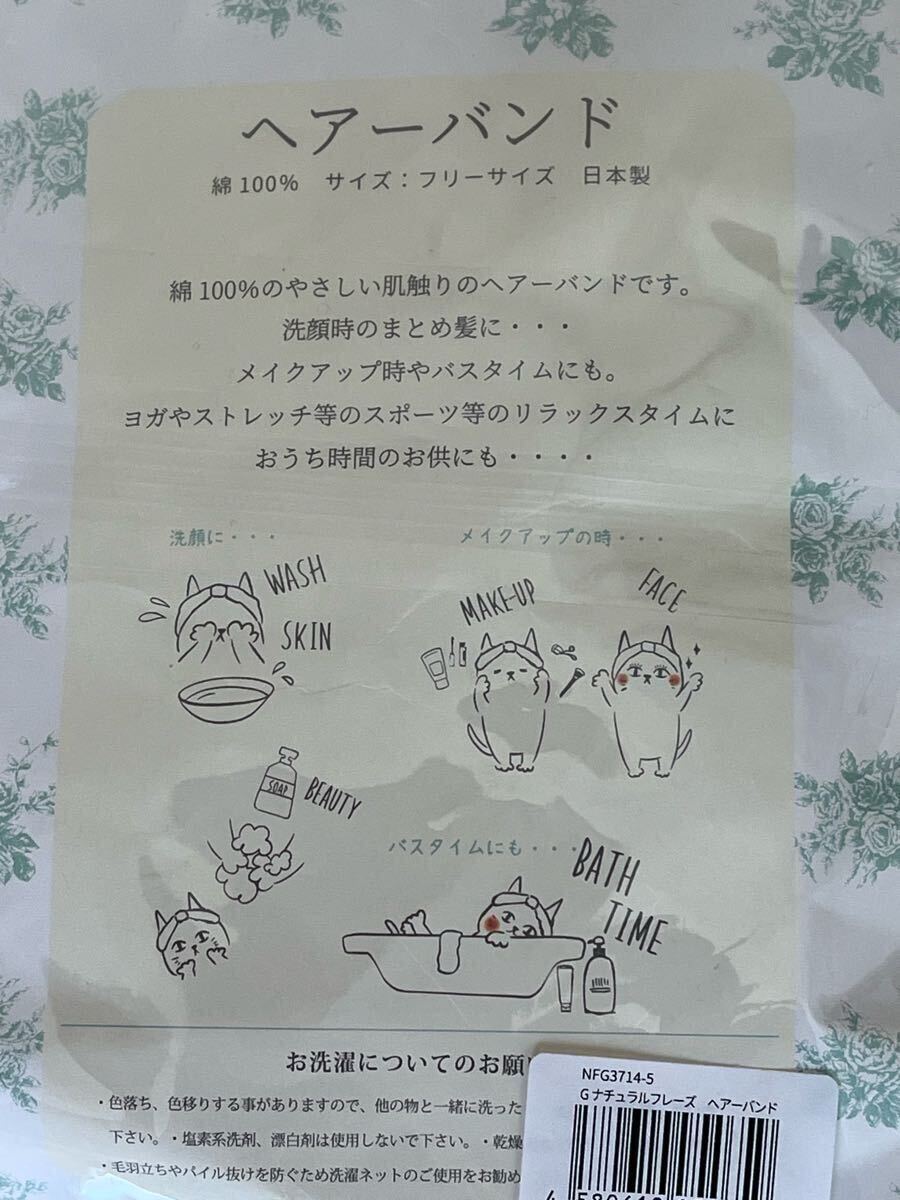 ヘアーバンド
綿100% サイズ：フリーサイズ 日本製
綿100%のやさしい肌触りのヘアーバンドです。
洗顔時のまとめ髪に・・・
メイクアップ時やバスタイムにも。
ヨガやストレッチ等のスポーツ等のリラックスタイムに
おうち時間のお供にも・・・・
洗顔に・・・
WASH
SKIN
メイクアップの時・・・
MAKE-UP
FACE
SOAP
BEAUTY
バスタイムにも・・・
BATH
TIME
お洗濯についてのお願
・色落ち、色移りする事がありますので、他の物と一緒に洗った
下さい。・塩素系洗剤、漂白剤は使用しないで下さい。・乾燥
・毛羽立ちやパイル抜けを防ぐため洗濯ネットのご使用をお勧め
NFG3714-5
Gナチュラルフレーズ ヘアーバンド